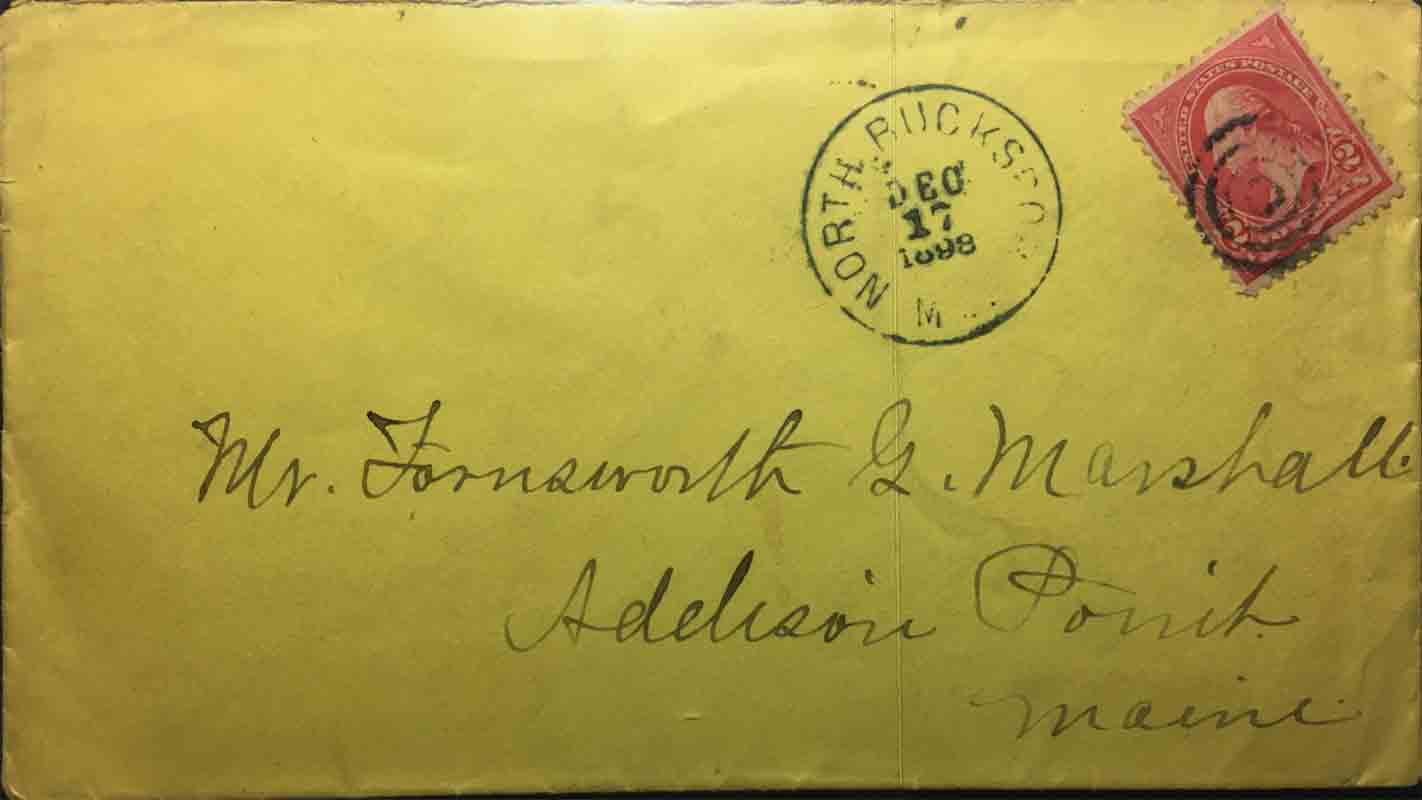 NORTH BUCKSPO
DEC
17
1898
M
UNITED STATES POSTAGE
2
2
Mr. Farnsworth G. Marshall.
Addison Point.
Maine.